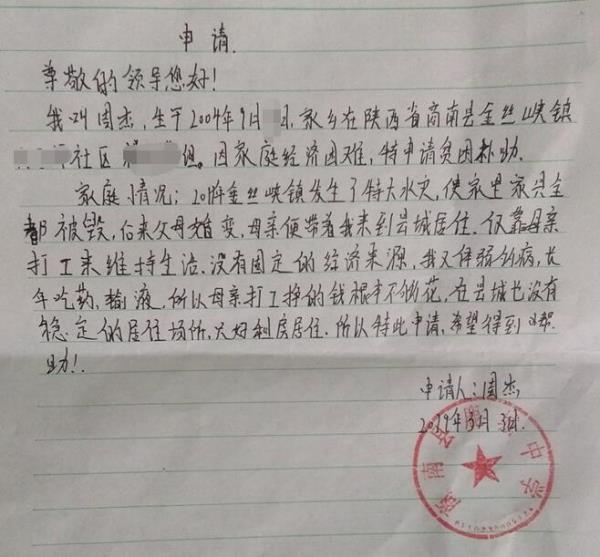 申请.
尊敬的领导您好!
我叫周杰,生于2004年9月 日,家乡在陕西省商南县金丝峡镇
社区 组。因家庭经济困难,特申请贫困补助.
家庭情况:201 年金丝峡镇发生了特大水灾,使家里家具全
都被毁,后来父母难变,母亲便带着我来到县城居住.仅靠母亲
打工来维持生活.没有固定的经济来源,我又体弱多病,长
年吃药,输液,所以母亲打工挣的钱根本不够花,在县城也没有
稳定的居住场所,只好租房居住.所以特此申请,希望得到 帮
助!
申请人:周杰
2019年3月3日.
商南县 中学